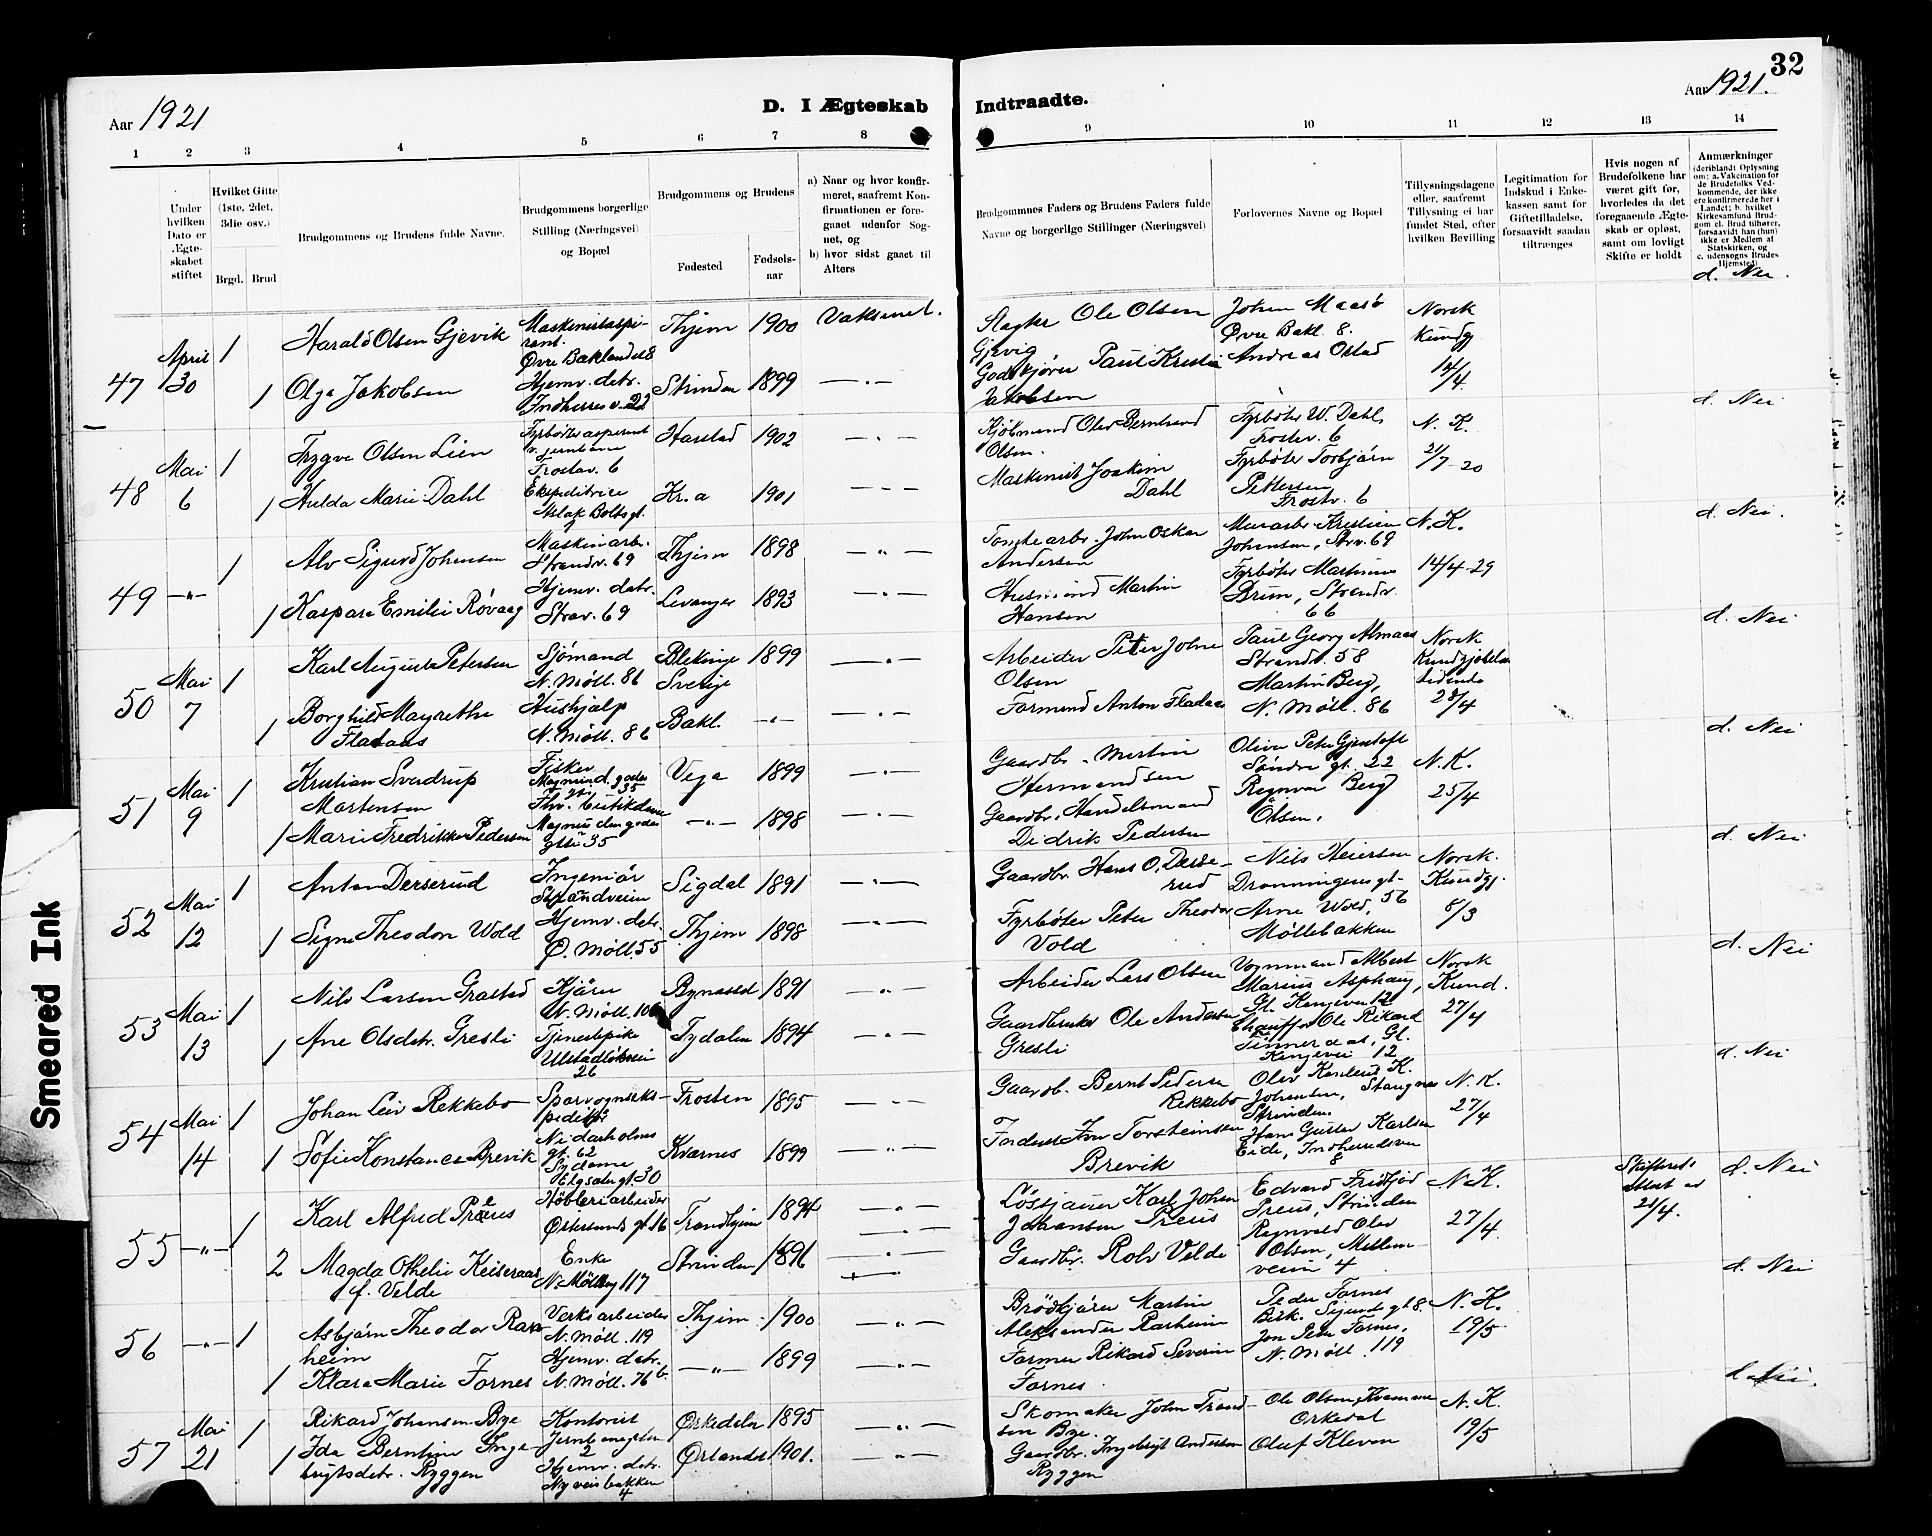 32
Aar 1921
D. I Ægteskab Indtraadte.
Aar 1921.
1 2 3 4 5 6 7 8 9 10 11 12 13 14
Under hvilken Dato er Ægteskabet stiftet
Hvilket Gifte (1ste, 2det, 3die osv.)
Brgd. Brud
Brudgommens og Brudens fulde Navne.
Brudgommens borgerlige Stilling (Næringsvei) og Bopæl
Brudgommens og Brudens
Fødested
Fødselsaar
a) Naar og hvor konfirmeret, saafremt Konfirmationen er foregaaet udenfor Sognet, og
b) hvor sidst gaaet til Alters
Brudgommnes Faders og Brudens Faders fulde Navne og borgerlige Stillinger (Næringsvei)
Forlovernes Navne og Bopæl
Tillysningsdagene eller, saafremt Tillysning ei har fundet Sted, efter hvilken Bevilling
Legitimation for Indskud i Enkekassen samt for Giftetilladelse, forsaavidt saadan tiltrænges
Hvis nogen af Brudefolkene har været gift før, hvorledes da det foregaaende Ægteskab er opløst, samt om lovligt Skifte er holdt
Anmærkninger (deriblandt Oplysning om: a. Vakcination for de Brudefolks Vedkommende, der ikke ere konfirmerede her i Landet; b. hvilket Kirkesamfund Brudgom el. Brud tilhører, forsaavidt han (hun) ikke er Medlem af Statskirken, og c. udensogns Brudes Hjemsted)
d. Nei.
47 April 30
1 Harald Olsen Gjevik
Maskinistaspirant. Øvre Baklandet 8
Thjem 1900
Vaksinet.
Ole Olsen Gjevig
Johan Maasø Øvre Bakl. 8.
Norsk Kundg 14/4
1 Olga Jakobsen
Hjemv. datr. Indherres v. 22
Strinden 1899 — " —
Godskjører Paul Kristia Jakobsen
Andreas Ostad
d. Nei
48 Mai 6
1 Trygve Olsen Lien
Fyrbøteraspirant v. jernbane Frostav. 6
Harstad 1902 — " —
Kjøbmand Olav Berntsend Olsen.
Fyrbøter W. Dahl, Frostav. 6
N. K. 21/7-20
1 Hulda Marie Dahl
Ekspeditrice Aslak Boltsgt.
Kr.a 1901 — " —
Maskinist Joakim Dahl
Fyrbøter Torbjørn Pettersen Frostv. 6
d. Nei.
49 — " —
1 Alv Sigurd Johansen
Maskinarb. Strandv. 69
Thjem 1898 — " —
Tomtearbr. John Oskar Andersen
Murarb. Kristian Johansen, Strv. 69
N. K. 14/4-29
1 Kaspara Emilie Røvaag
Hjemv. datr. Strav. 69
Levanger 1893 — " —
Husmand Martin Hansen
Fyrbøter Martinus Brun, Strandv. 66
d. Nei
50 Mai 7
1 Karl August Petersen
Sjømand N. Møll. 86
Blekinge Sverige 1899 — " —
Arbeider Peter Johne Olsen
Paul Georg Almaas Strandv. 58
Norsk Kundgjørelsestidende 28/4
1 Borghild Magrethe Fladaas
Hushjælp N. Møll. 86
Bakl. — " — — " —
Formand Anton Fladaas
Martin Berg, N. Møll. 86
d. Nei
51 Mai 9
1 Kristian Sverdrup Martensen
Fisker Magnus d. godes gt. 35
Vega 1899 — " —
Gaardbr. Martin Hermandsen
Oliver Peter Gjentoft Søndre gt. 22
N. K. 25/4
1 Marie Fredrikke Pedersen
Magnus den godes gt. 35
— " — 1898 — " —
Gaardbr. Handelsmand Didrik Pedersen
Ragnvar Berg Olsen.
d. Nei
52 Mai 12
1 Anton Derserud
Ingeniør Strandveien
Sigdal 1891 — " —
Gaardbr. Hans O. Derserud
Nils Heiersen Dronningensgt. 56
Norsk. Kundgj. 8/3
1 Signe Theodora Wold
Hjemv. datr. Ø. Møll. 55
Thjem 1898 — " —
Fyrbøter Peter Theodor Vold
Arne Wold, Møllebakken
d. Nei
53 Mai 13
1 Nils Larsen Grastad
Kjører N. Møll. 106
Bynesset 1891 — " —
Arbeider Lars Olsen
Vognmand Albert Marius Asphaug, Gl. Kongevei 12
Norsk Kund. 27/4
1 Ane Olsdatr. Gresli
Tjenestepike Ulstadløkveien 26
Tydalen 1894 — " —
Gaardbruker Ole Andersen Gresli
Chauffør Ole Rikard Gl. Kongevei 12
d. Nei
54 Mai 14
1 Johan Leiv Rekkebo
Sporvognsekspeditør Nidarholms gt. 62
Frosten 1895 — " —
Gaardb. Bernt Pedersen Rekkebo
Olav K. Johansen, Strinden
N. K. 27/4
1 Sofie Konstance Brevik
Sydame Elgsetergt. 30
Kværnes 1899 — " —
Torsteinsen Brevik
Hans Gustav Karlsen Eide, Indherredsvn 8
d. Nei
55 — " —
1 Karl Alfred Preus
Høvleriarbeider Østersunds gt. 16
Trondhjem 1894 — " —
Karl Johan Johansen Preus
Edvard Fridtjof Preus, Strinden
N. K. 27/4.
Skifteretsattest av 21/4.
2 Magda Othelie Keiseraas f. Velde
Enke N. Møllebg 117
Strinden 1896 — " —
Gaardbr. Rolv Velde
Ragnvald Olav Olsen, Mellemveien 4
d. Nei
56 — " —
1 Asbjørn Theodor Ranheim
Verksarbeider N. Møll. 119
Thjem. 1900 — " —
Brødkjører Martin Aleksander Ranheim
Peder Fornes Birk. Sigurds gt 8.
N. K. 19/5
1 Klara Marie Fornes
Hjemv. datr. N. Møll. 76 b
— " — 1899 — " —
Former Rikard Severin Fornes.
Jon Peter Fornes, N. Møll. 119
d. Nei.
57 Mai 21
1 Rikard Johansen Bye
Kontorist Jernbanegaten 2
Ørkedalen 1895 — " —
Skomaker John Trondsen Bye.
Ole Olsen Kvamme Orkedal
N. K. 19/5
1 Ida Berntine Ingebrigtsdatr. Ryggen
Hjemv. datr. Nyveisbakken 4
Ørlandet 1901. — " —
Gaardbr. Ingebrigt Andersen Ryggen
Oluf Kleven
Smeared Ink